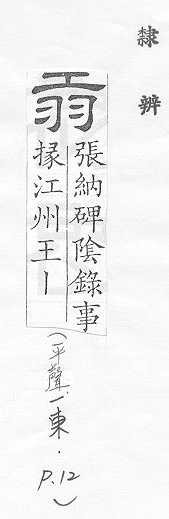 隸辨
張納碑陰錄事
掾江州王｜
(平聲一東．P.12)